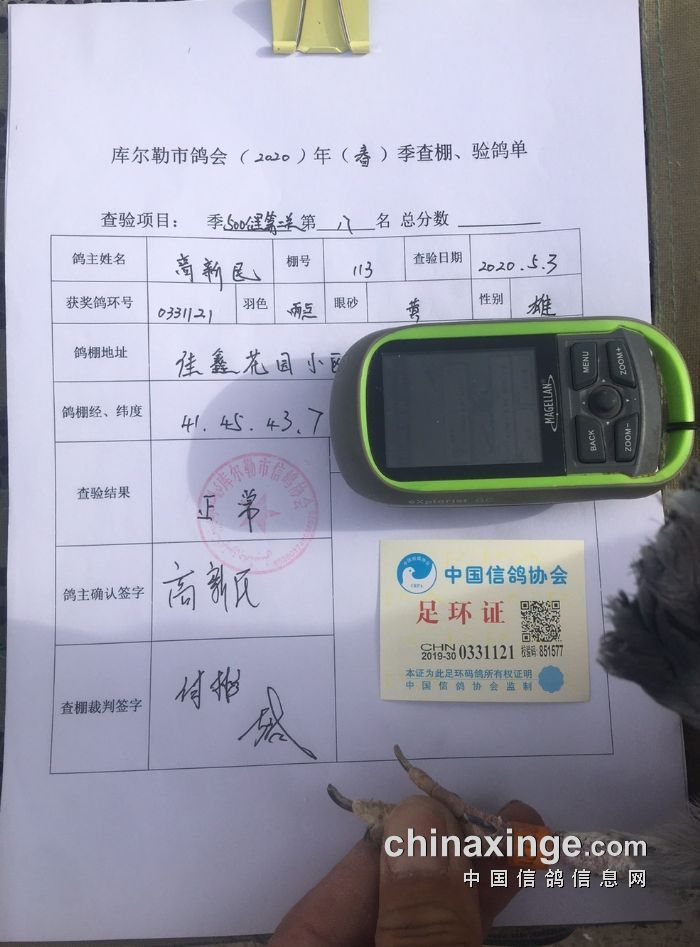 库尔勒市鸽会（2020）年（春）季查棚、验鸽单
查验项目： 季500公里第二关第 八 名 总分数
鸽主姓名 高新民 棚号 113 查验日期 2020.5.3
获奖鸽环号 0331121 羽色 雨点 眼砂 黄 性别 雄
鸽棚地址 佳鑫花园小区
鸽棚经、纬度 41.45.43.7
查验结果 正常
库尔勒市信鸽协会
鸽主确认签字 高新民
查棚裁判签字
MAGELLAN
MENU
ZOOM+
BACK
ZOOM−
eXplorist GC
中国信鸽协会
足环证
CHN
2019-30 0331121 校验码 851577
本证为此足环码鸽所有权证明
中国信鸽协会监制
chinaxinge.com
中国信鸽信息网